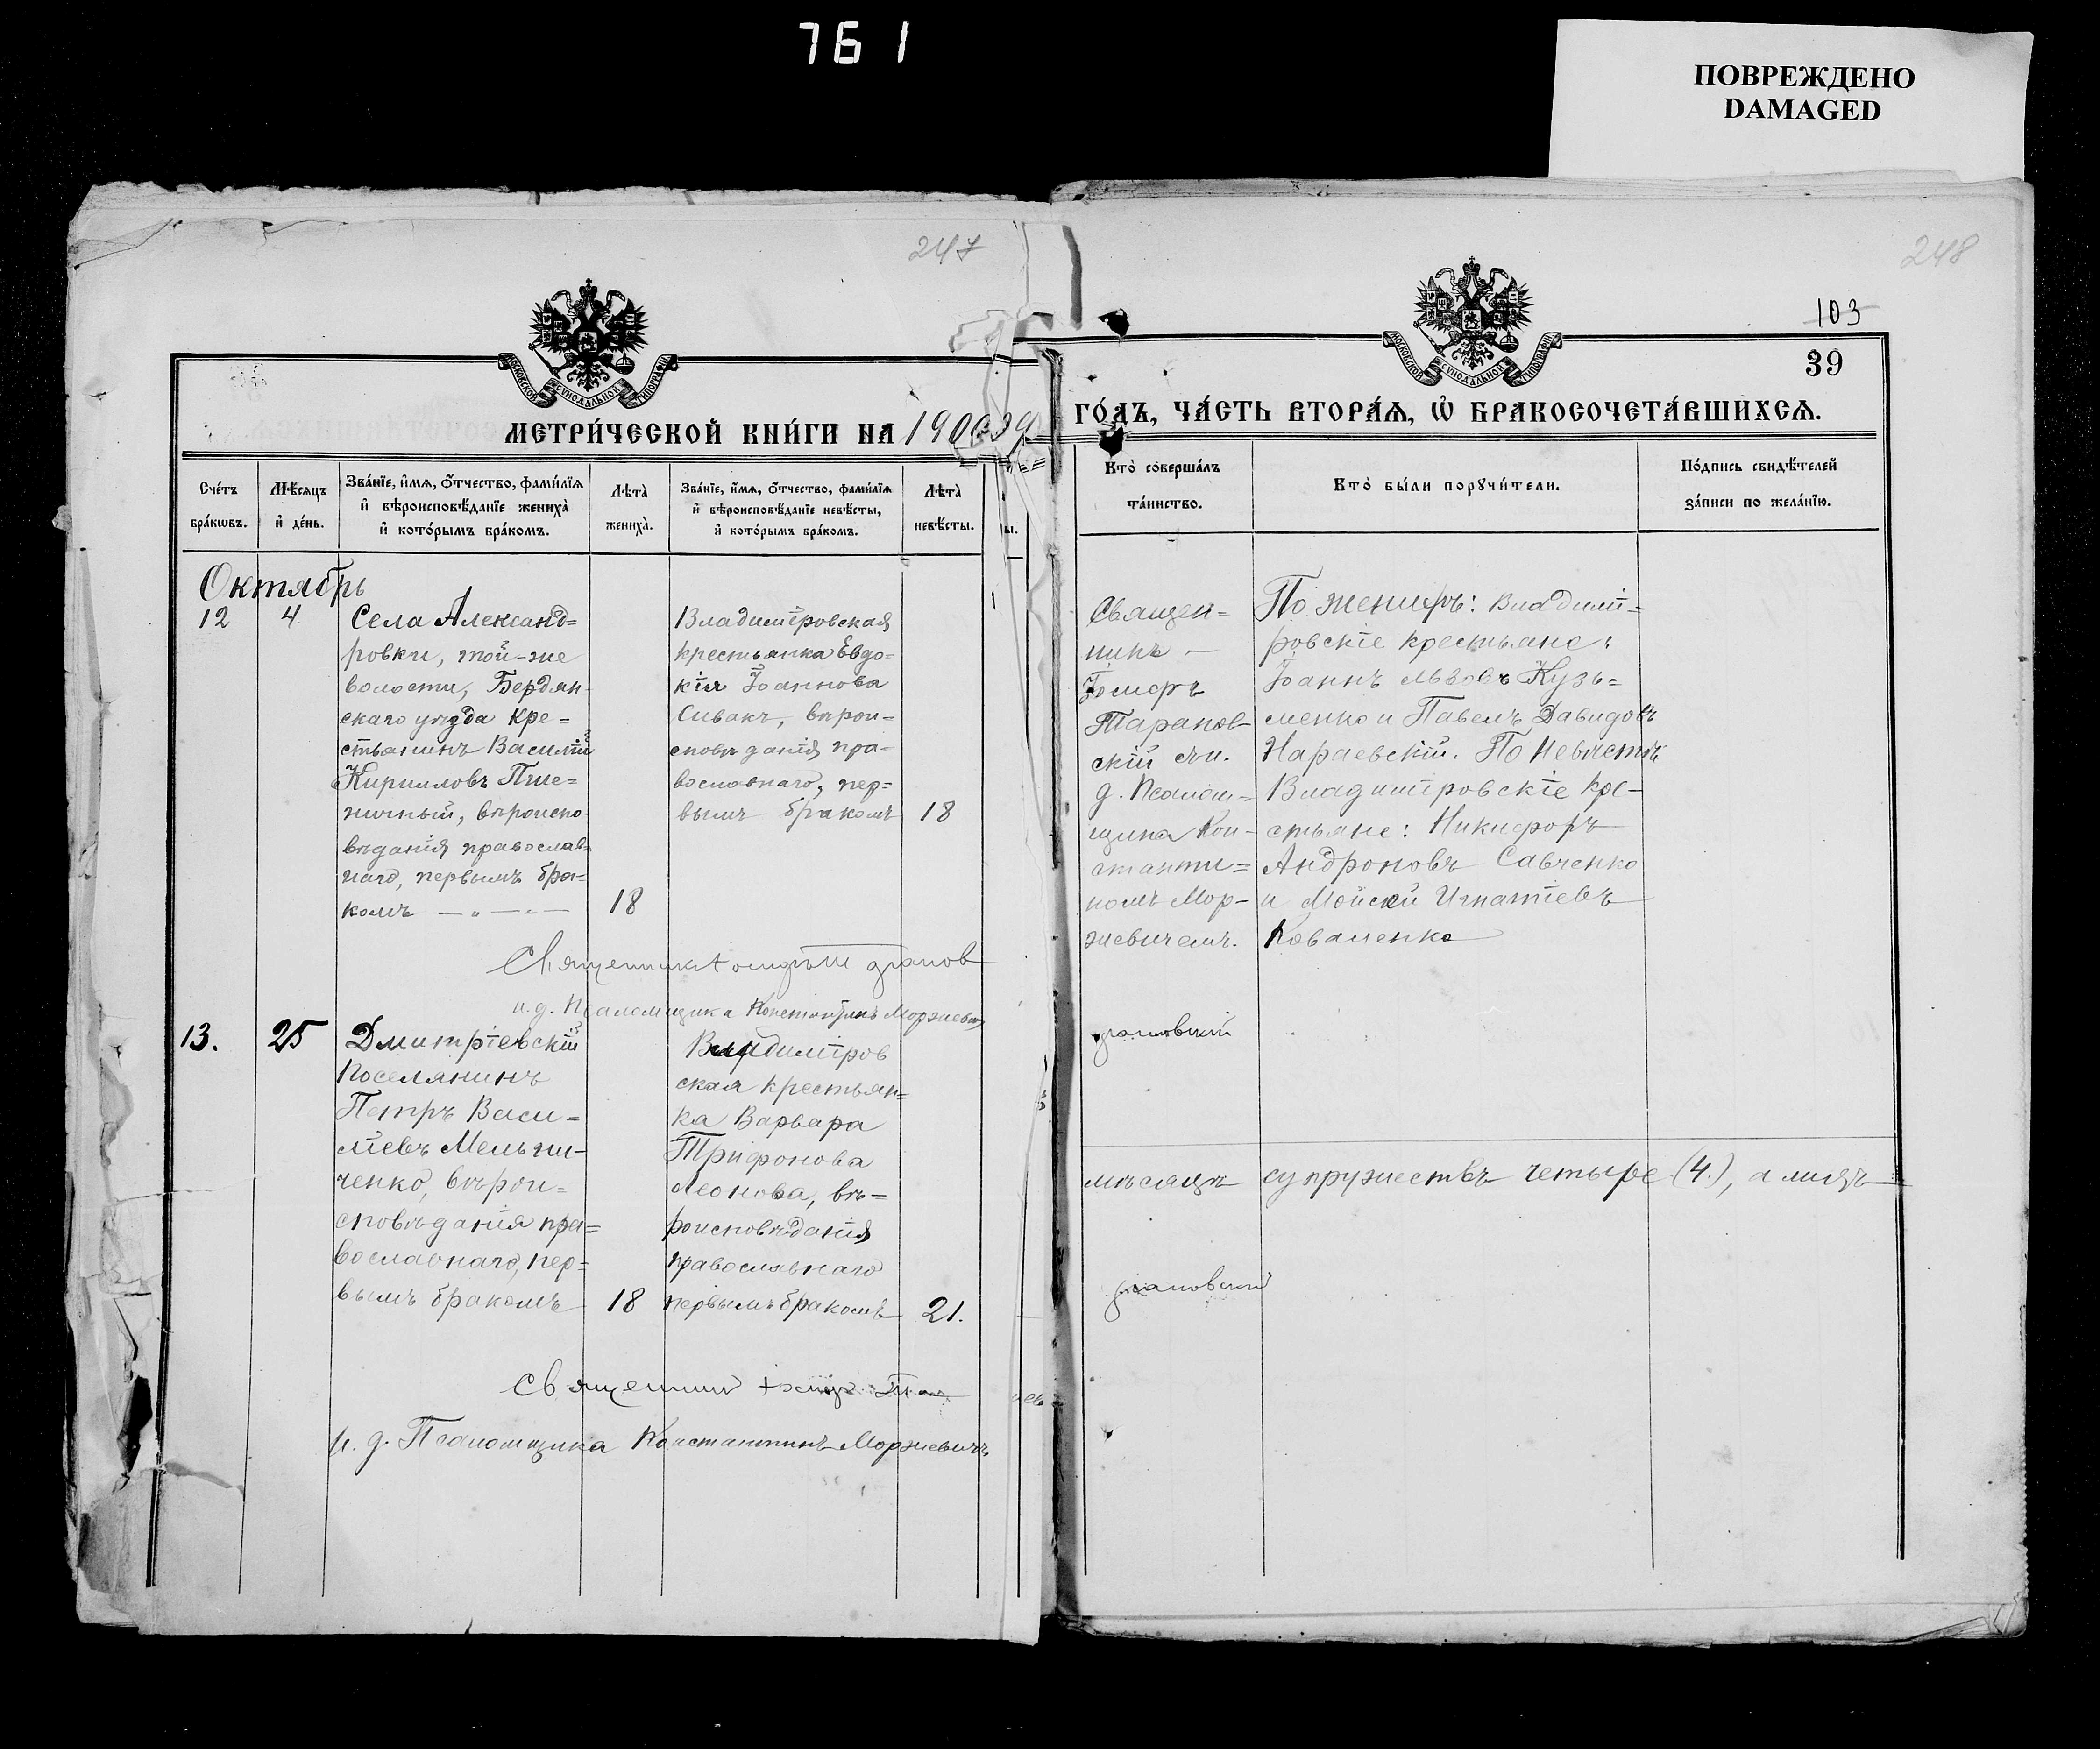 761
ПОВРЕЖДЕНО
DAMAGED
247
МЕТРИ́ЧЕСКОЙ КНИ́ГИ НА 190
Сче́тъ бра́кωвъ.
Мѣ́сяцъ и҆ де́нь.
Зва́нїе, и҆́мѧ, ѻ҆́тчество, фами́лїѧ и҆ вѣроисповѣ́данїе жениха̀ и҆ кото́рымъ бра́комъ.
Лѣта̀ жениха̀.
Зва́нїе, и҆́мѧ, ѻ҆́тчество, фами́лїѧ и҆ вѣроисповѣ́данїе невѣ́сты, и҆ кото́рымъ бра́комъ.
Лѣта̀ невѣ́сты.
Октябрь
12
4.
Села Александ=
ровки, той-же
волости, Бердян-
скаго уѣзда кре=
стьянинъ Василій
Кирилловъ Пше=
ничный, вѣроиспо-
вѣданія православ-
наго, первымъ бра=
комъ
18
Владиміровская
крестьянка Евдо=
кія Іоаннова
Сивакъ, вѣрои=
сповѣданія пра-
вославнаго, пер=
вымъ бракомъ
18
Священникъ
и.д. Псаломщика Константинъ Моржевич
13.
25
Дмитріевскій
поселянинъ
Петръ Васи=
ліевъ Мельни-
ченко, вѣрои=
сповѣданія пра=
вославнаго, пер=
вымъ бракомъ
18
Владиміров
ская крестьян=
ка Варвара
Трифонова
Леонова, вѣ=
роисповѣданія
православнаго
первымъ бракомъ
21.
Священник
И. д. Псаломщика Константинъ Моржевичъ
248
103
39
ГО́ДЪ, ЧА́СТЬ ВТОРА́Ѧ, Ѽ БРАКОСОЧЕТА́ВШИХСѦ.
Кто̀ соверша́лъ та́инство.
Кто̀ бы́ли порꙋчи́тели.
По́дпись свидѣ́телей за́писи по жела́нїю.
Священ=
никъ —
Тарапов-
скій съ и.
д. Псалом=
щика Кон-
станти=
номъ Мор-
жевичемъ.
По женихѣ: Владимі=
ровскіе крестьяне:
Іоаннъ Львовъ Кузь=
менко и Павелъ Давидовъ
Нараевскій. По невѣстѣ
Владиміровскіе кре-
стьяне: Никифоръ
Андроновъ Савченко
и Мойсей Игнатіевъ
Коваленко
мѣсяцѣ супружествъ четыре (4.), а лицъ